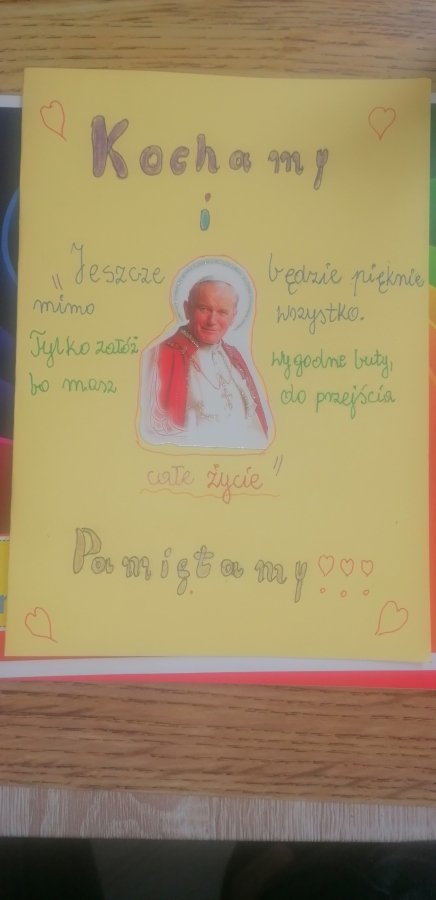 Kochamy
i
"Jeszcze będzie pięknie
mimo wszystko.
Tylko załóż wygodne buty,
bo masz do przejścia
całe życie"
Pamiętamy!!!